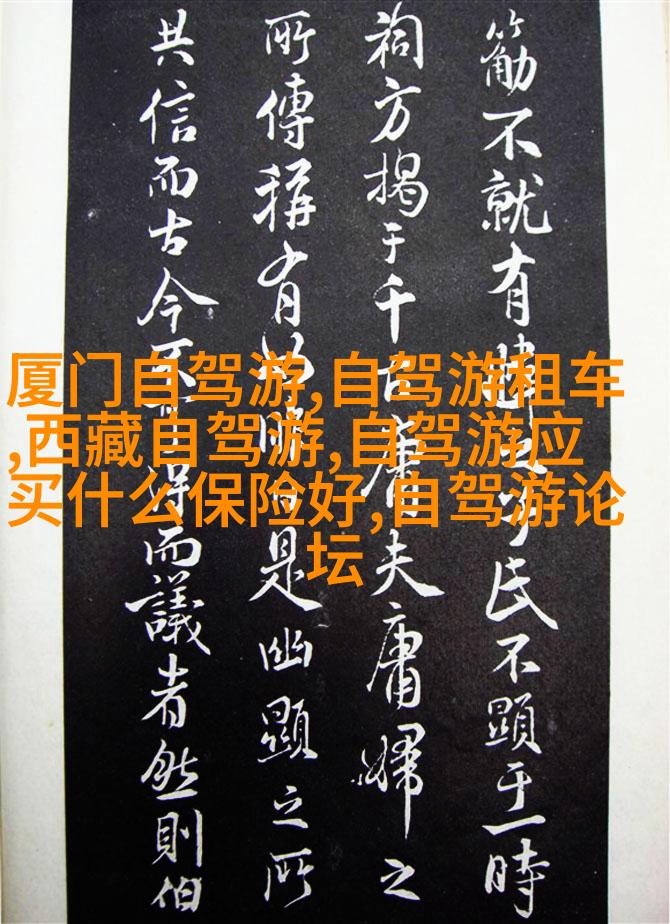 厦门自驾游,自驾游租车
,西藏自驾游,自驾游应
买什么保险好,自驾游论
坛
不就有民不顯于一時
祠方揭于千古庸夫庸婦之
所傳稱有是幽顯之所
共信而古今不得而議者然則伯